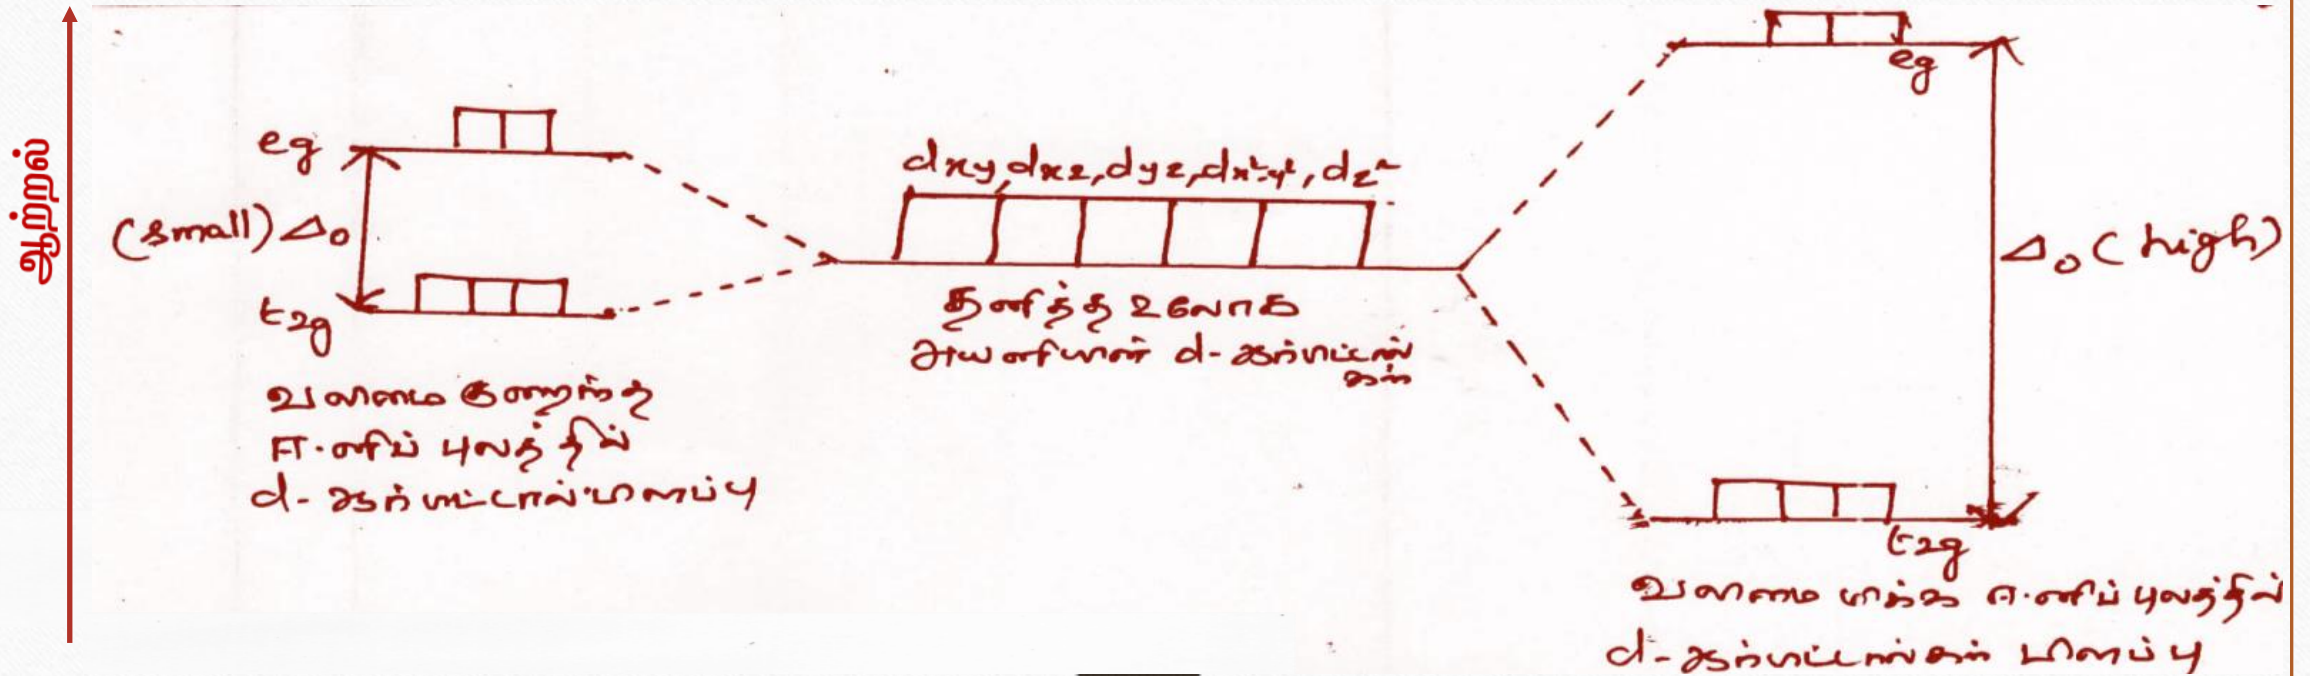 ஆற்றல்
eg
(small) Δ₀
t₂g
வலிமை குறைந்த
ஈனிப் புலத்தில்
d-ஆர்பிட்டால் பிளப்பு
dxy, dxz, dyz, dx²-y², dz²
தனித்த உலோக
அயனியின் d-ஆர்பிட்டால்
கள்
eg
Δ₀ (high)
t₂g
வலிமை மிக்க ஈனிப் புலத்தில்
d-ஆர்பிட்டால்கள் பிளப்பு